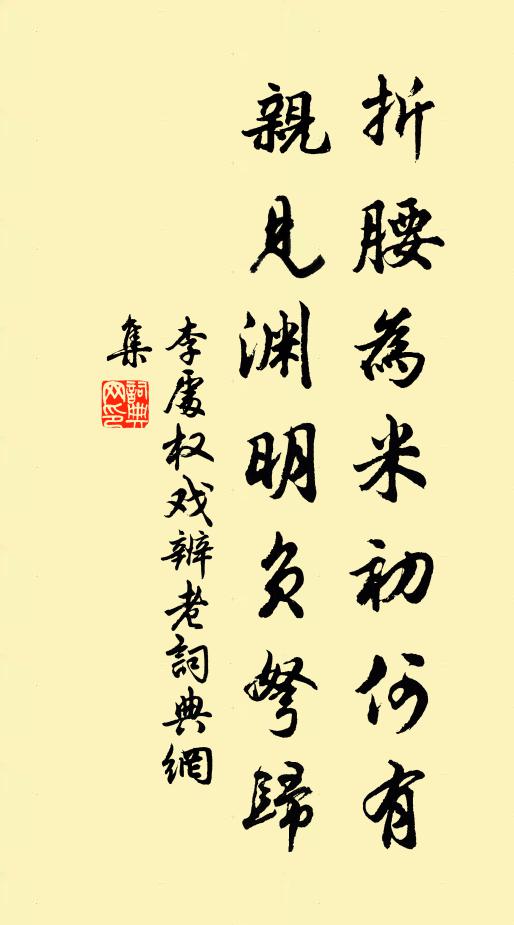 折腰為米初何有
親見淵明負弩歸
李處权戏辨老詞典網
集
詞典網印